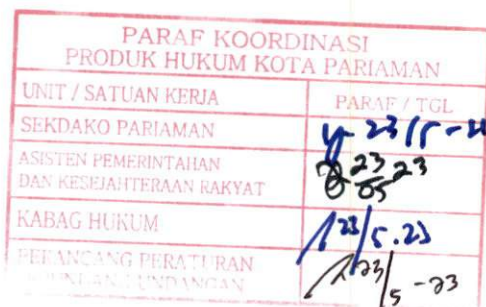 PARAF KOORDINASI
PRODUK HUKUM KOTA PARIAMAN
UNIT / SATUAN KERJA PARAF / TGL
SEKDAKO PARIAMAN 23/5 -
ASISTEN PEMERINTAHAN
DAN KESEJAHTERAAN RAKYAT 23/05 23
KABAG HUKUM 23/5.23
PERANCANG PERATURAN
UNDANGAN 23/5 -23